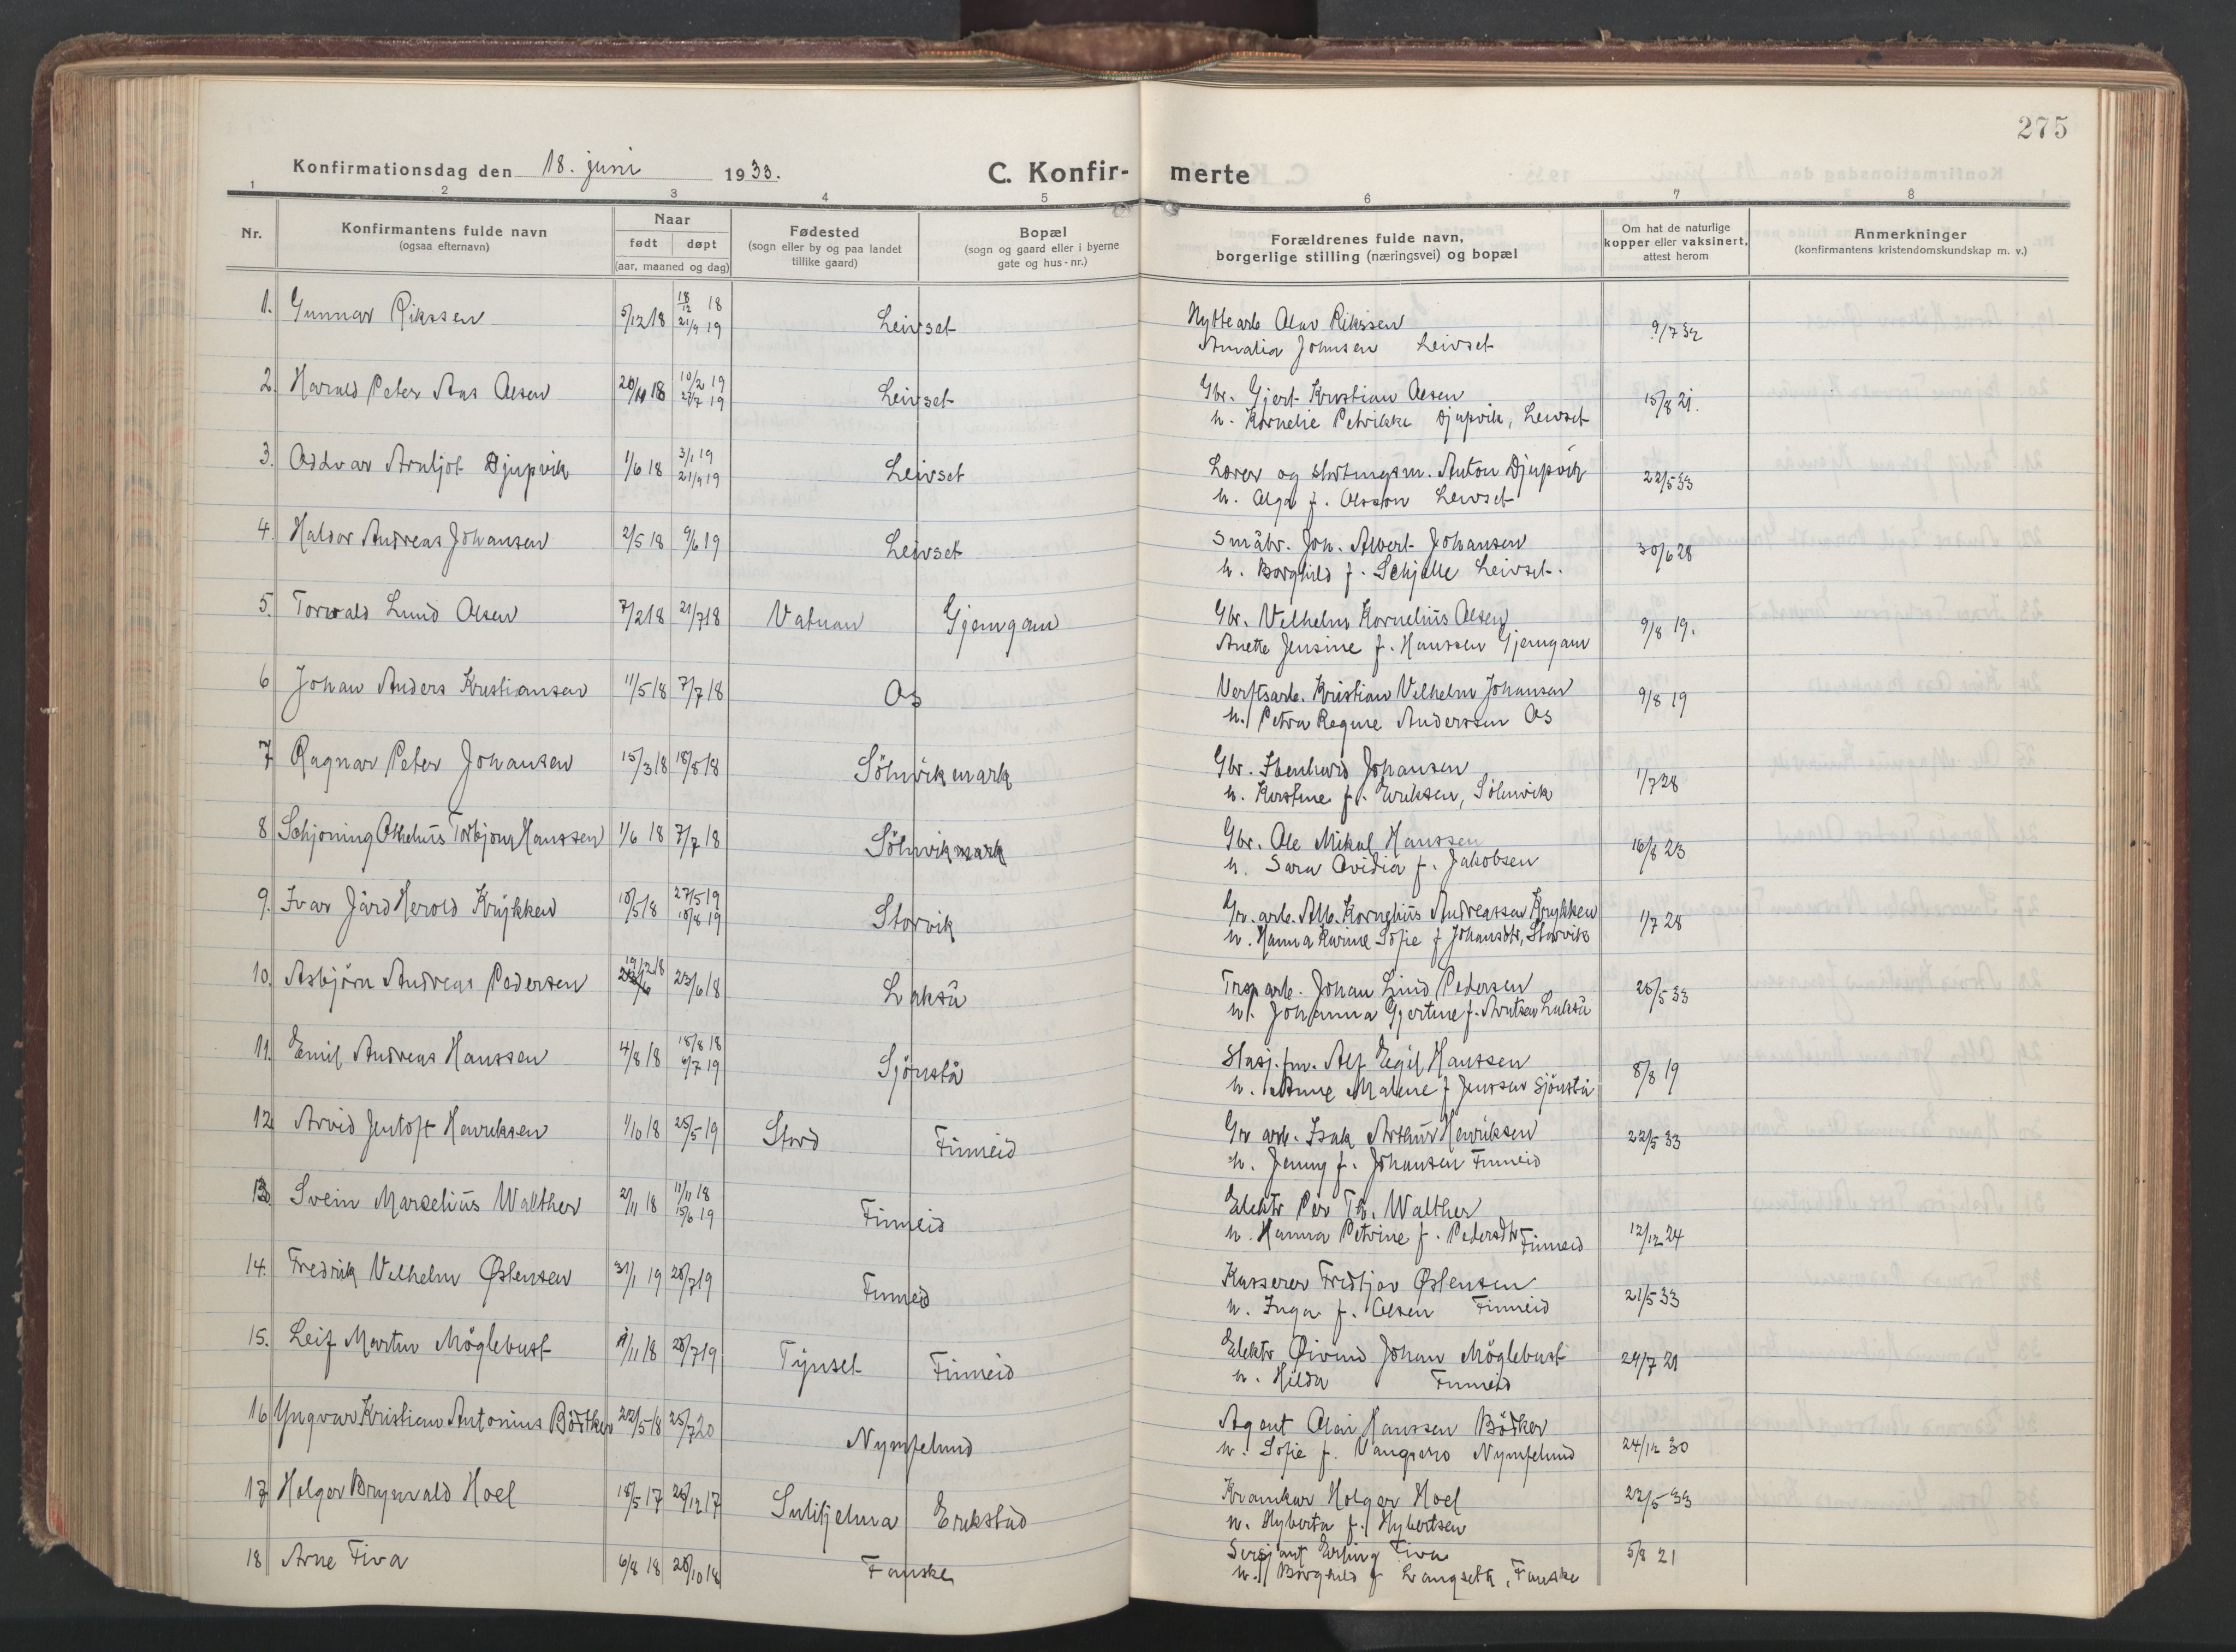 275
Konfirmationsdag den 18. juni 1933.
C. Konfir- merte
1 2 3 4 5 6 7 8
Nr.
Konfirmantens fulde navn
(ogsaa efternavn)
Naar
født døpt
(aar, maaned og dag)
Fødested
(sogn eller by og paa landet
tillike gaard)
Bopæl
(sogn og gaard eller i byerne
gate og hus-nr.)
Forældrenes fulde navn,
borgerlige stilling (næringsvei) og bopæl
Om hat de naturlige
kopper eller vaksinert,
attest herom
Anmerkninger
(konfirmantens kristendomskundskap m. v.)
1. Gunnar Rikssen 5/12 18 18/12 18 21/9 19 Leivset Hyttearb Olav Rikssen 9/7 32
Amalia Johnsen Leivset
2. Harald Peter Aas Olsen 18 10/2 19 27/7 19 Leivset Gbr. Gjert Kristian Olsen 15/8 21.
h. Kornelie Petrikke Djupvik, Leivset
3. Oddvar Arnljot Djupvik 1/6 18 3/1 19 21/9 19 Leivset Lærer og stortingsm. Anton Djupvik 22/5 33
h. Olga f. Olsson Leivset
4. Haldor Andreas Johansen 2/5 18 9/6 19 Leivset Småbr. Joh. Albert Johansen 30/6 28
h. Borghild f. Schjelle Leivset.
5. Torvald Lund Olsen 7/2 18 21/7 18 Vatnan Gjemgam Gbr. Vilhelm Kornelius Olsen 9/8 19.
Anette Jensine f. Hanssen Gjemgam
6 Johan Anders Kristiansen 11/5 18 7/7 18 Os Verftsarb. Kristian Vilhelm Johansen 9/8 19
h. Petra Regine Anderssen Os
7 Ragnar Peter Johansen 15/3 18 18/8 18 Sölnvikmark Gbr. Ebenhard Johansen 1/7 28
h. Kirstine f. Eriksen, Sölnvik
8 Schjoning Othelius Torbjørn Hanssen 1/6 18 7/7 18 Sölnvikmark Gbr. Ole Mikal Hanssen 16/8 23
h. Sara Ovidia f. Jakobsen
9. Ivar Jård Herold Krykken 10/5 18 27/5 19 10/8 19 Storvik Gr. arb. Alb. Kornelius Andreassen Krykken 1/7 28
h. Hanna Karine Sofie f Johansdtr, Storvik
10. Asbjörn Andreas Pedersen 19/2 18 23/6 18 Lakså Trsp arb. Johan Lind Pedersen 26/5 33
h. Johanna Gjertine f. Arntsen Lakså
11. Emil Andreas Hanssen 4/8 18 18/8 18 6/7 19 Sjönstå Stasj. fm. Alf Egil Hanssen 8/8 19
h. Anne Malene f Jenssen Sjönstå
12 Arvid Jentoft Henriksen 1/10 18 25/5 19 Stord Finneid Gr arb. Isak Arthur Henriksen 22/5 33
h. Jenny f. Johansen Finneid
13. Svein Marselius Walther 2/11 18 17/11 18 15/6 19 Finneid Elektr Per Th. Walther 12/12 24
h. Hanna Petrine f. Pedersdtr Finneid
14. Fredrik Vilhelm Østensen 31/1 19 20/7 19 Finneid Kasserer Fridtjov Østensen 21/5 33
h. Inga f. Olsen Finneid
15. Leif Martin Möglebust 11/11 18 20/7 19 Tynset Finneid Elektr Øivind Johan Möglebust 24/7 21
h. Hilda Finneid
16 Yngvar Kristian Antonius Bödtker 22/5 18 25/7 20 Nymfelund Agent Olai Hanssen Bödker 24/12 30
h. Sofie f. Nymfelund
17 Holger Brynvald Hoel 18/5 17 26/12 17 Sulitjelma Erikstad Krankar Holger Hoel 22/5 33
h. Hyberta f. Hybertsen
18 Arne Fiva 6/8 18 20/10 18 Fauske Sersjant Erling Fiva 5/8 21
h. Borghild f Langseth, Fauske